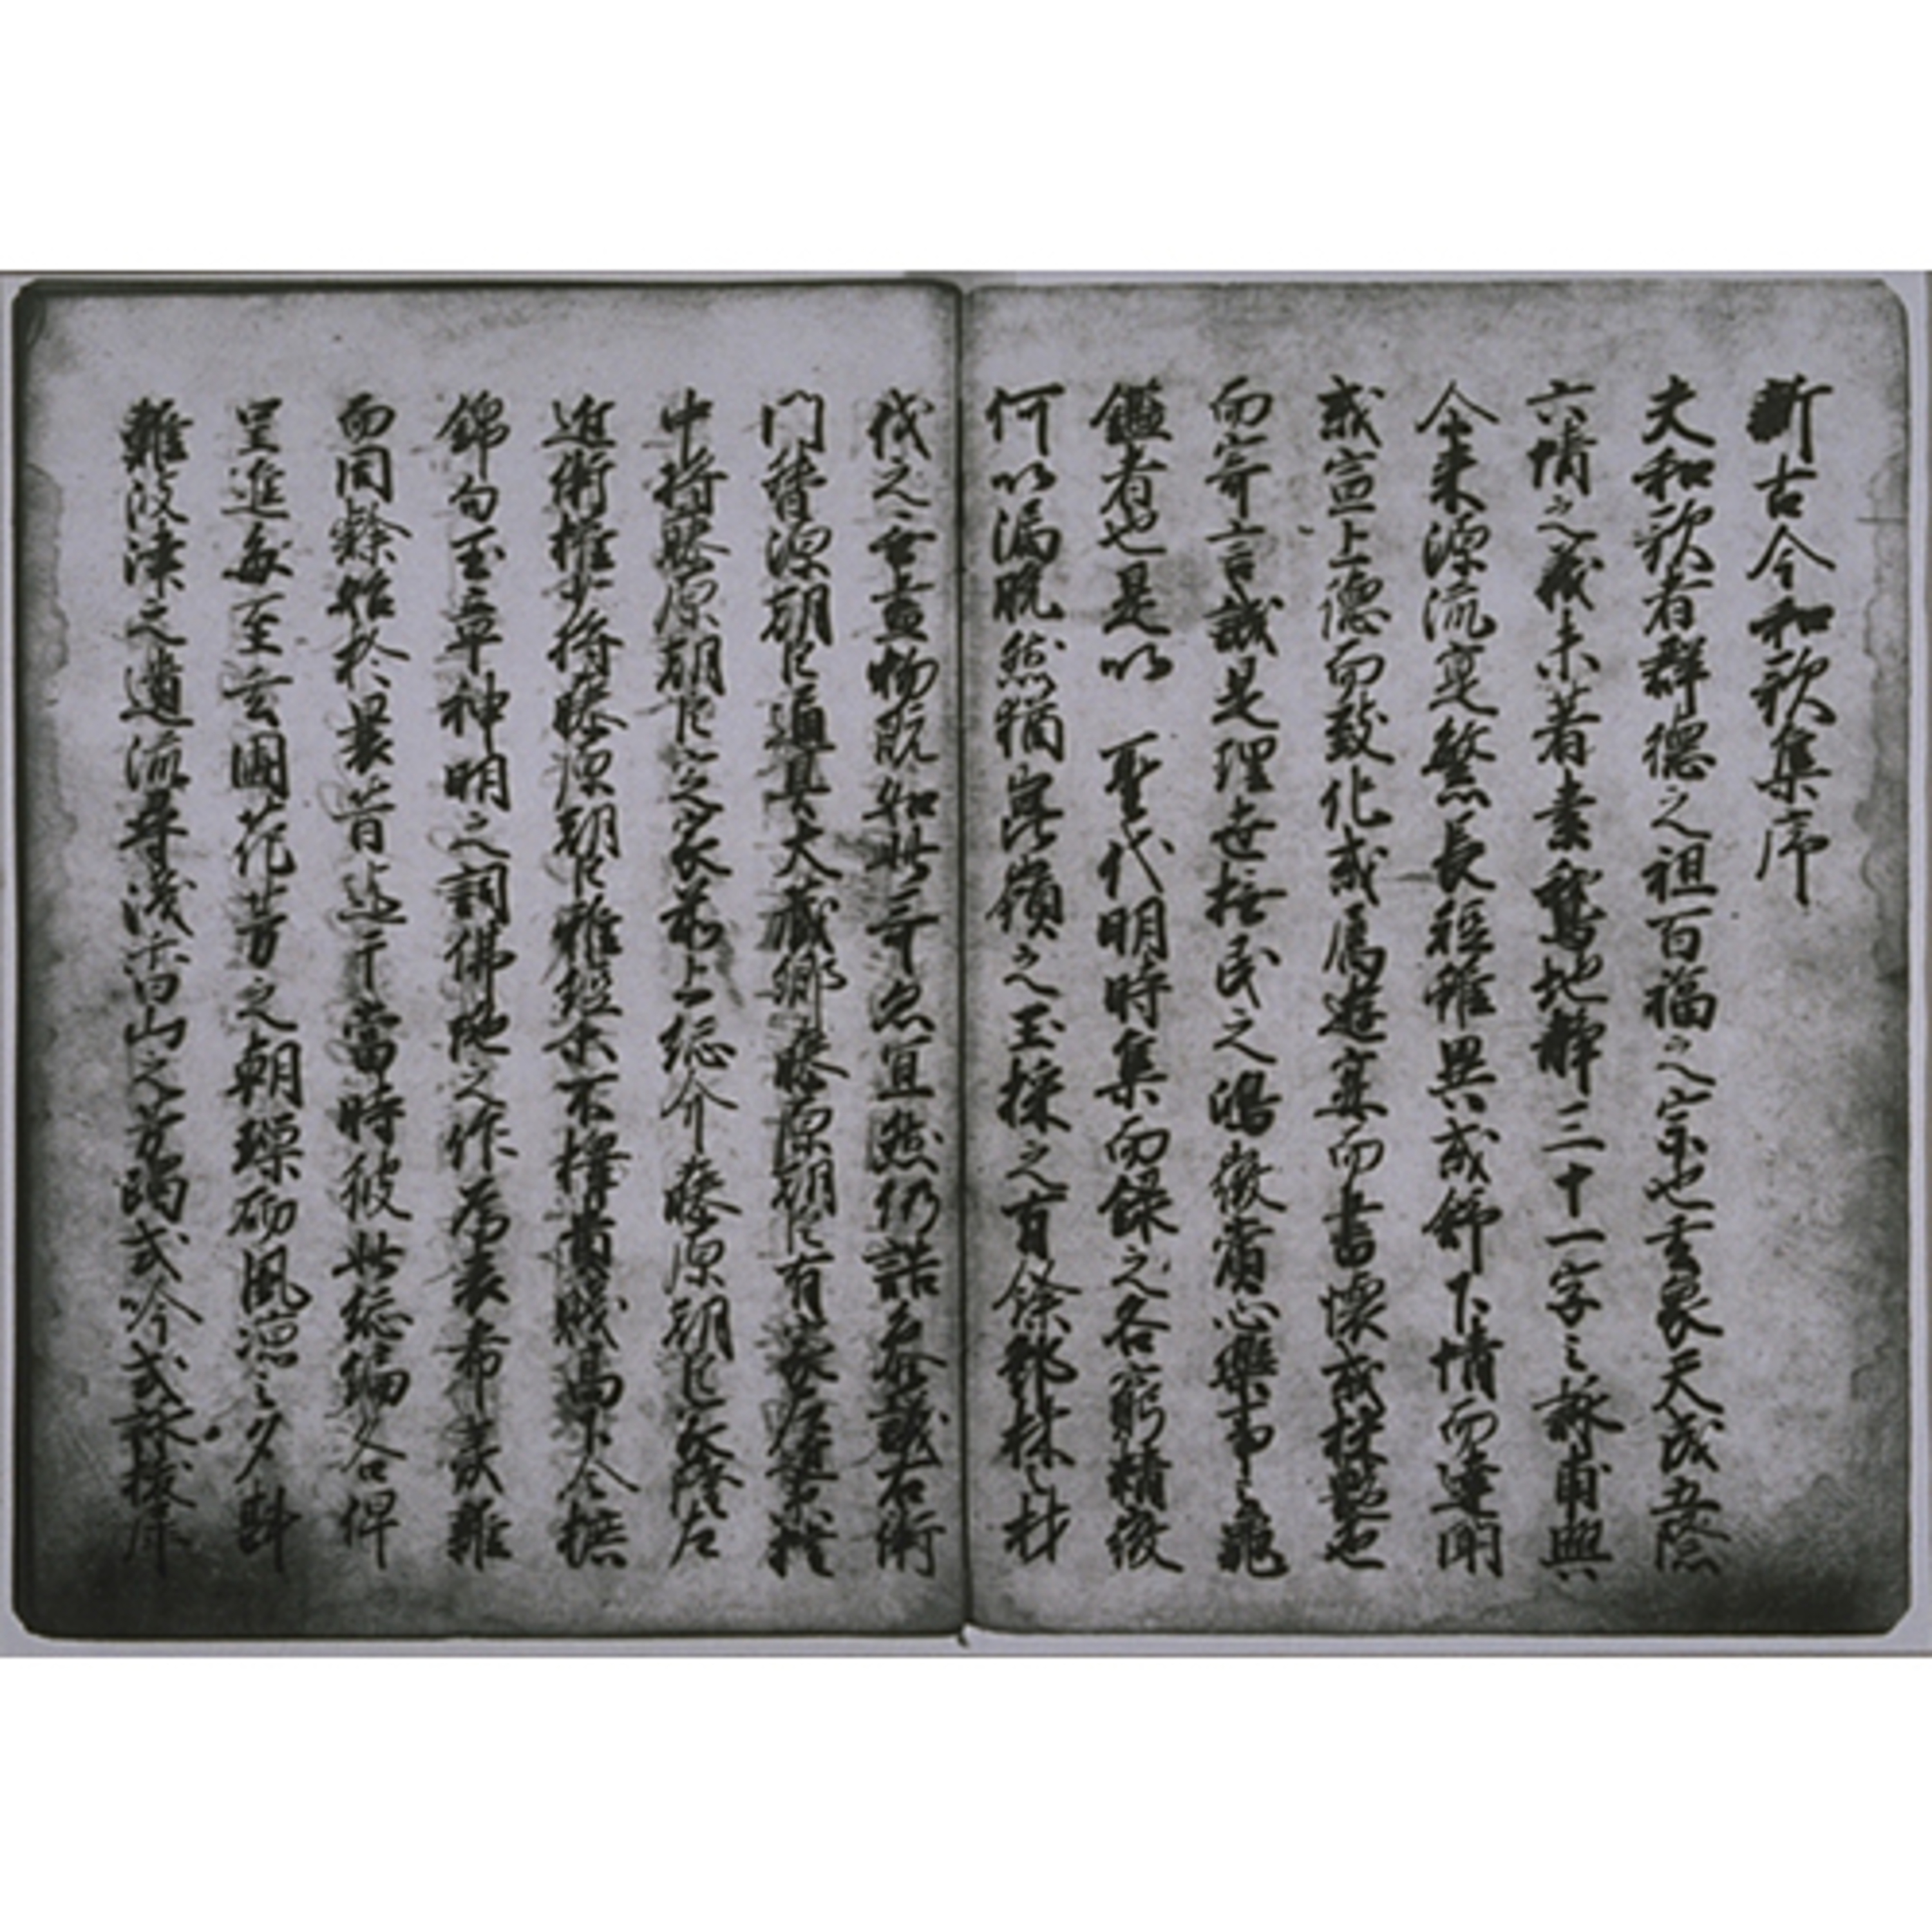 新古今和歌集序
夫和歌者群德之祖百福之宗也玄象天成五際
六情之義未著素鵞地静三十一字之詠甫興
尒来源流寔繁長短雖異或舒下情而達聞
或宣上德而致化或属遊宴而書懐或採艶色
而寄言誠是理世撫民之鴻徽賞心樂事之龜
鑑者也是以 聖代明時集而録之各窮精微
何以漏脱然猶崑嶺之玉採之有餘鄧林之材
伐之無盡物既如此哥亦宜然仍詔参議右衛
門督源朝臣通具大蔵卿藤原朝臣有家左近衛権
中将藤原朝臣定家前上総介藤原朝臣家隆左
近衛権少将藤原朝臣雅經等不擇貴賎高下令摭
錦句玉章神明之詞佛陀之作為表希夷雜
而同隷始於曩昔迄于當時彼此総編各俾
呈進毎至玄圃花芳之朝璅砌風涼之夕斟
難波津之遺流尋浅香山之芳躅或吟或詠抜犀